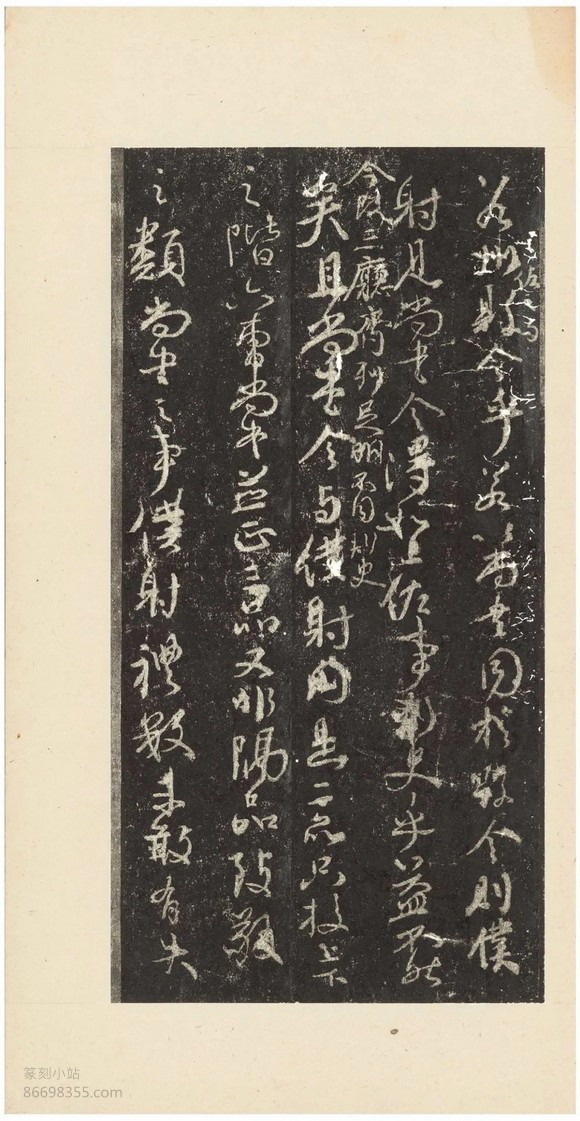 州縣令乎若以尚書同於縣令則僕
射見尚書令得如上佐事刺史乎益不然
今既三廳齊列足明不同刺史
矣且尚書令與僕射同是二品只校上下
之階六曹尚書並正三品又非隔品致敬
之類尚書之事僕射禮數未敢有失
篆刻小站
86698355.com